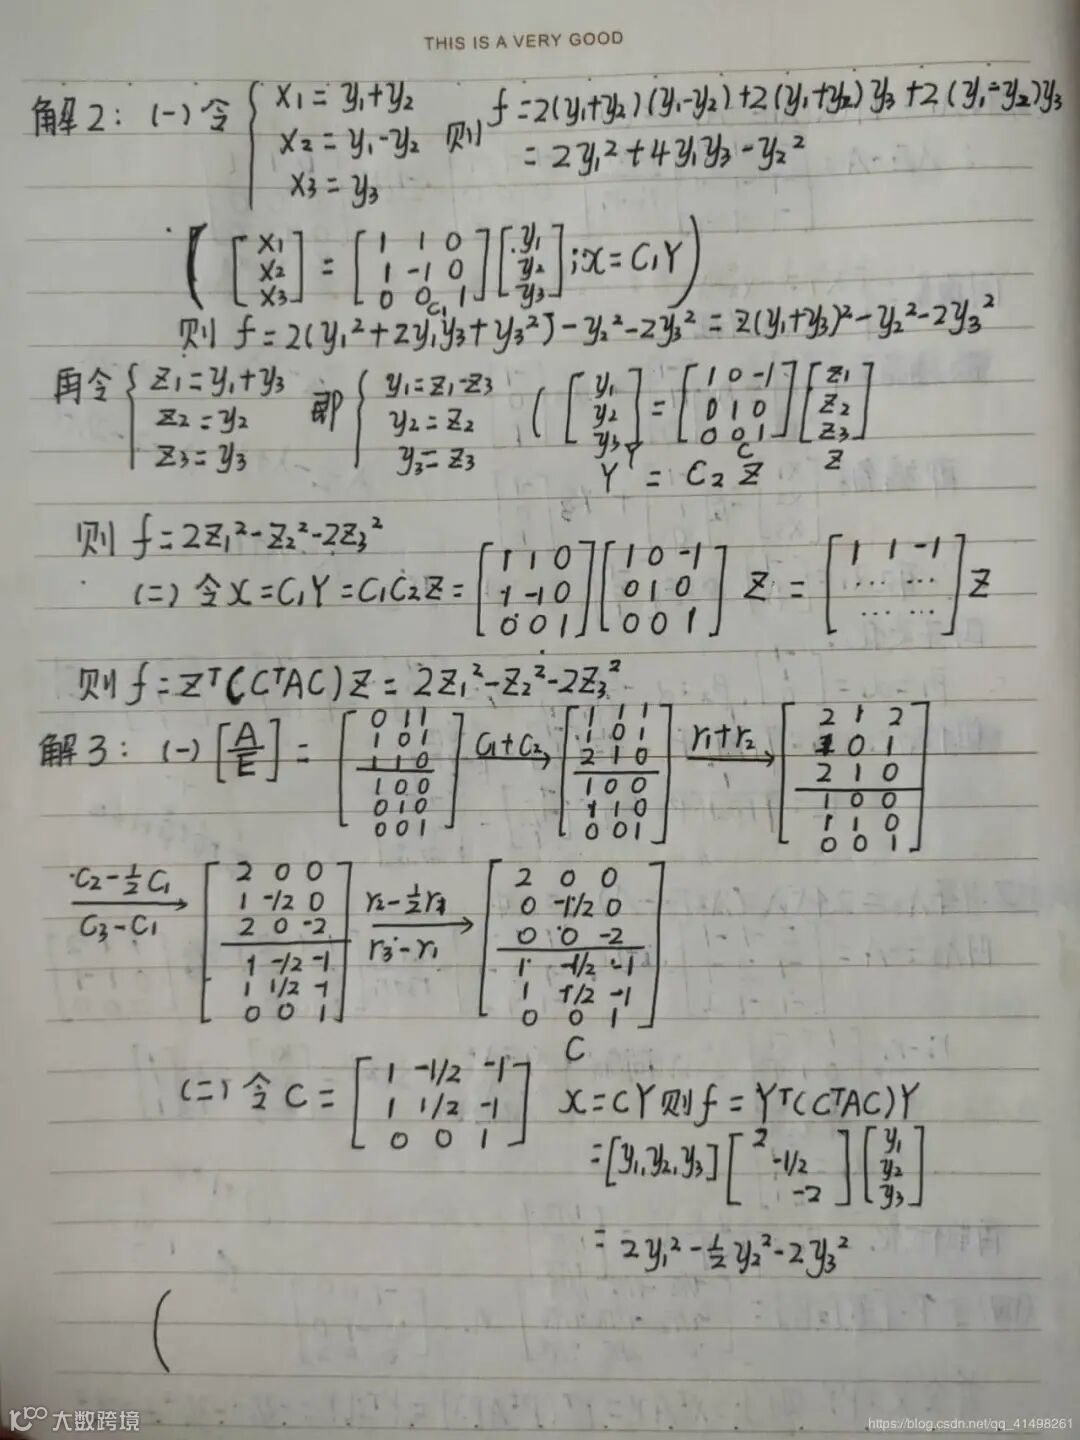 THIS IS A VERY GOOD
解2: (一) 令 { x1 = y1+y2  x2 = y1-y2  x3 = y3 则 f = 2(y1+y2)(y1-y2)+2(y1+y2)y3+2(y1-y2)y3
= 2y1²+4y1y3-y2²
( [x1 x2 x3] = [1 1 0; 1 -1 0; 0 0 1] C1 [y1 y2 y3] ; x=C1Y )
则 f = 2(y1²+2y1y3+y3²)-y2²-2y3² = 2(y1+y3)²-y2²-2y3²
再令 { z1=y1+y3  z2=y2  z3=y3 即 { y1=z1-z3  y2=z2  y3=z3 ( [y1 y2 y3] = [1 0 -1; 0 1 0; 0 0 1] [z1 z2 z3]
Y = C2 Z
则 f=2z1²-z2²-2z3²
(二) 令 X=C1Y=C1C2Z= [1 1 0; 1 -1 0; 0 0 1] [1 0 -1; 0 1 0; 0 0 1] Z = [1 1 -1; ... ...; ... ...] Z
则 f=Zᵀ(CᵀAC)Z=2z1²-z2²-2z3²
解3: (一) [A/E] = [0 1 1; 1 0 1; 1 1 0; 1 0 0; 0 1 0; 0 0 1] C1+C2→ [1 1 1; 1 0 1; 2 1 0; 1 0 0; 1 1 0; 0 0 1] r1+r2→ [2 1 2; 1 0 1; 2 1 0; 1 0 0; 1 1 0; 0 0 1]
C2-½C1 C3-C1→ [2 0 0; 1 -1/2 0; 2 0 -2; 1 -1/2 -1; 1 1/2 -1; 0 0 1] r2-½r1 r3-r1→ [2 0 0; 0 -1/2 0; 0 0 -2; 1 -1/2 -1; 1 1/2 -1; 0 0 1]
C
(二) 令 C= [1 -1/2 -1; 1 1/2 -1; 0 0 1] X=CY 则 f=Yᵀ(CᵀAC)Y
=[y1,y2,y3] [2 -1/2 -2] [y1 y2 y3]
= 2y1²-½y2²-2y3²
(
大数跨境
https://blog.csdn.net/qq_41498261